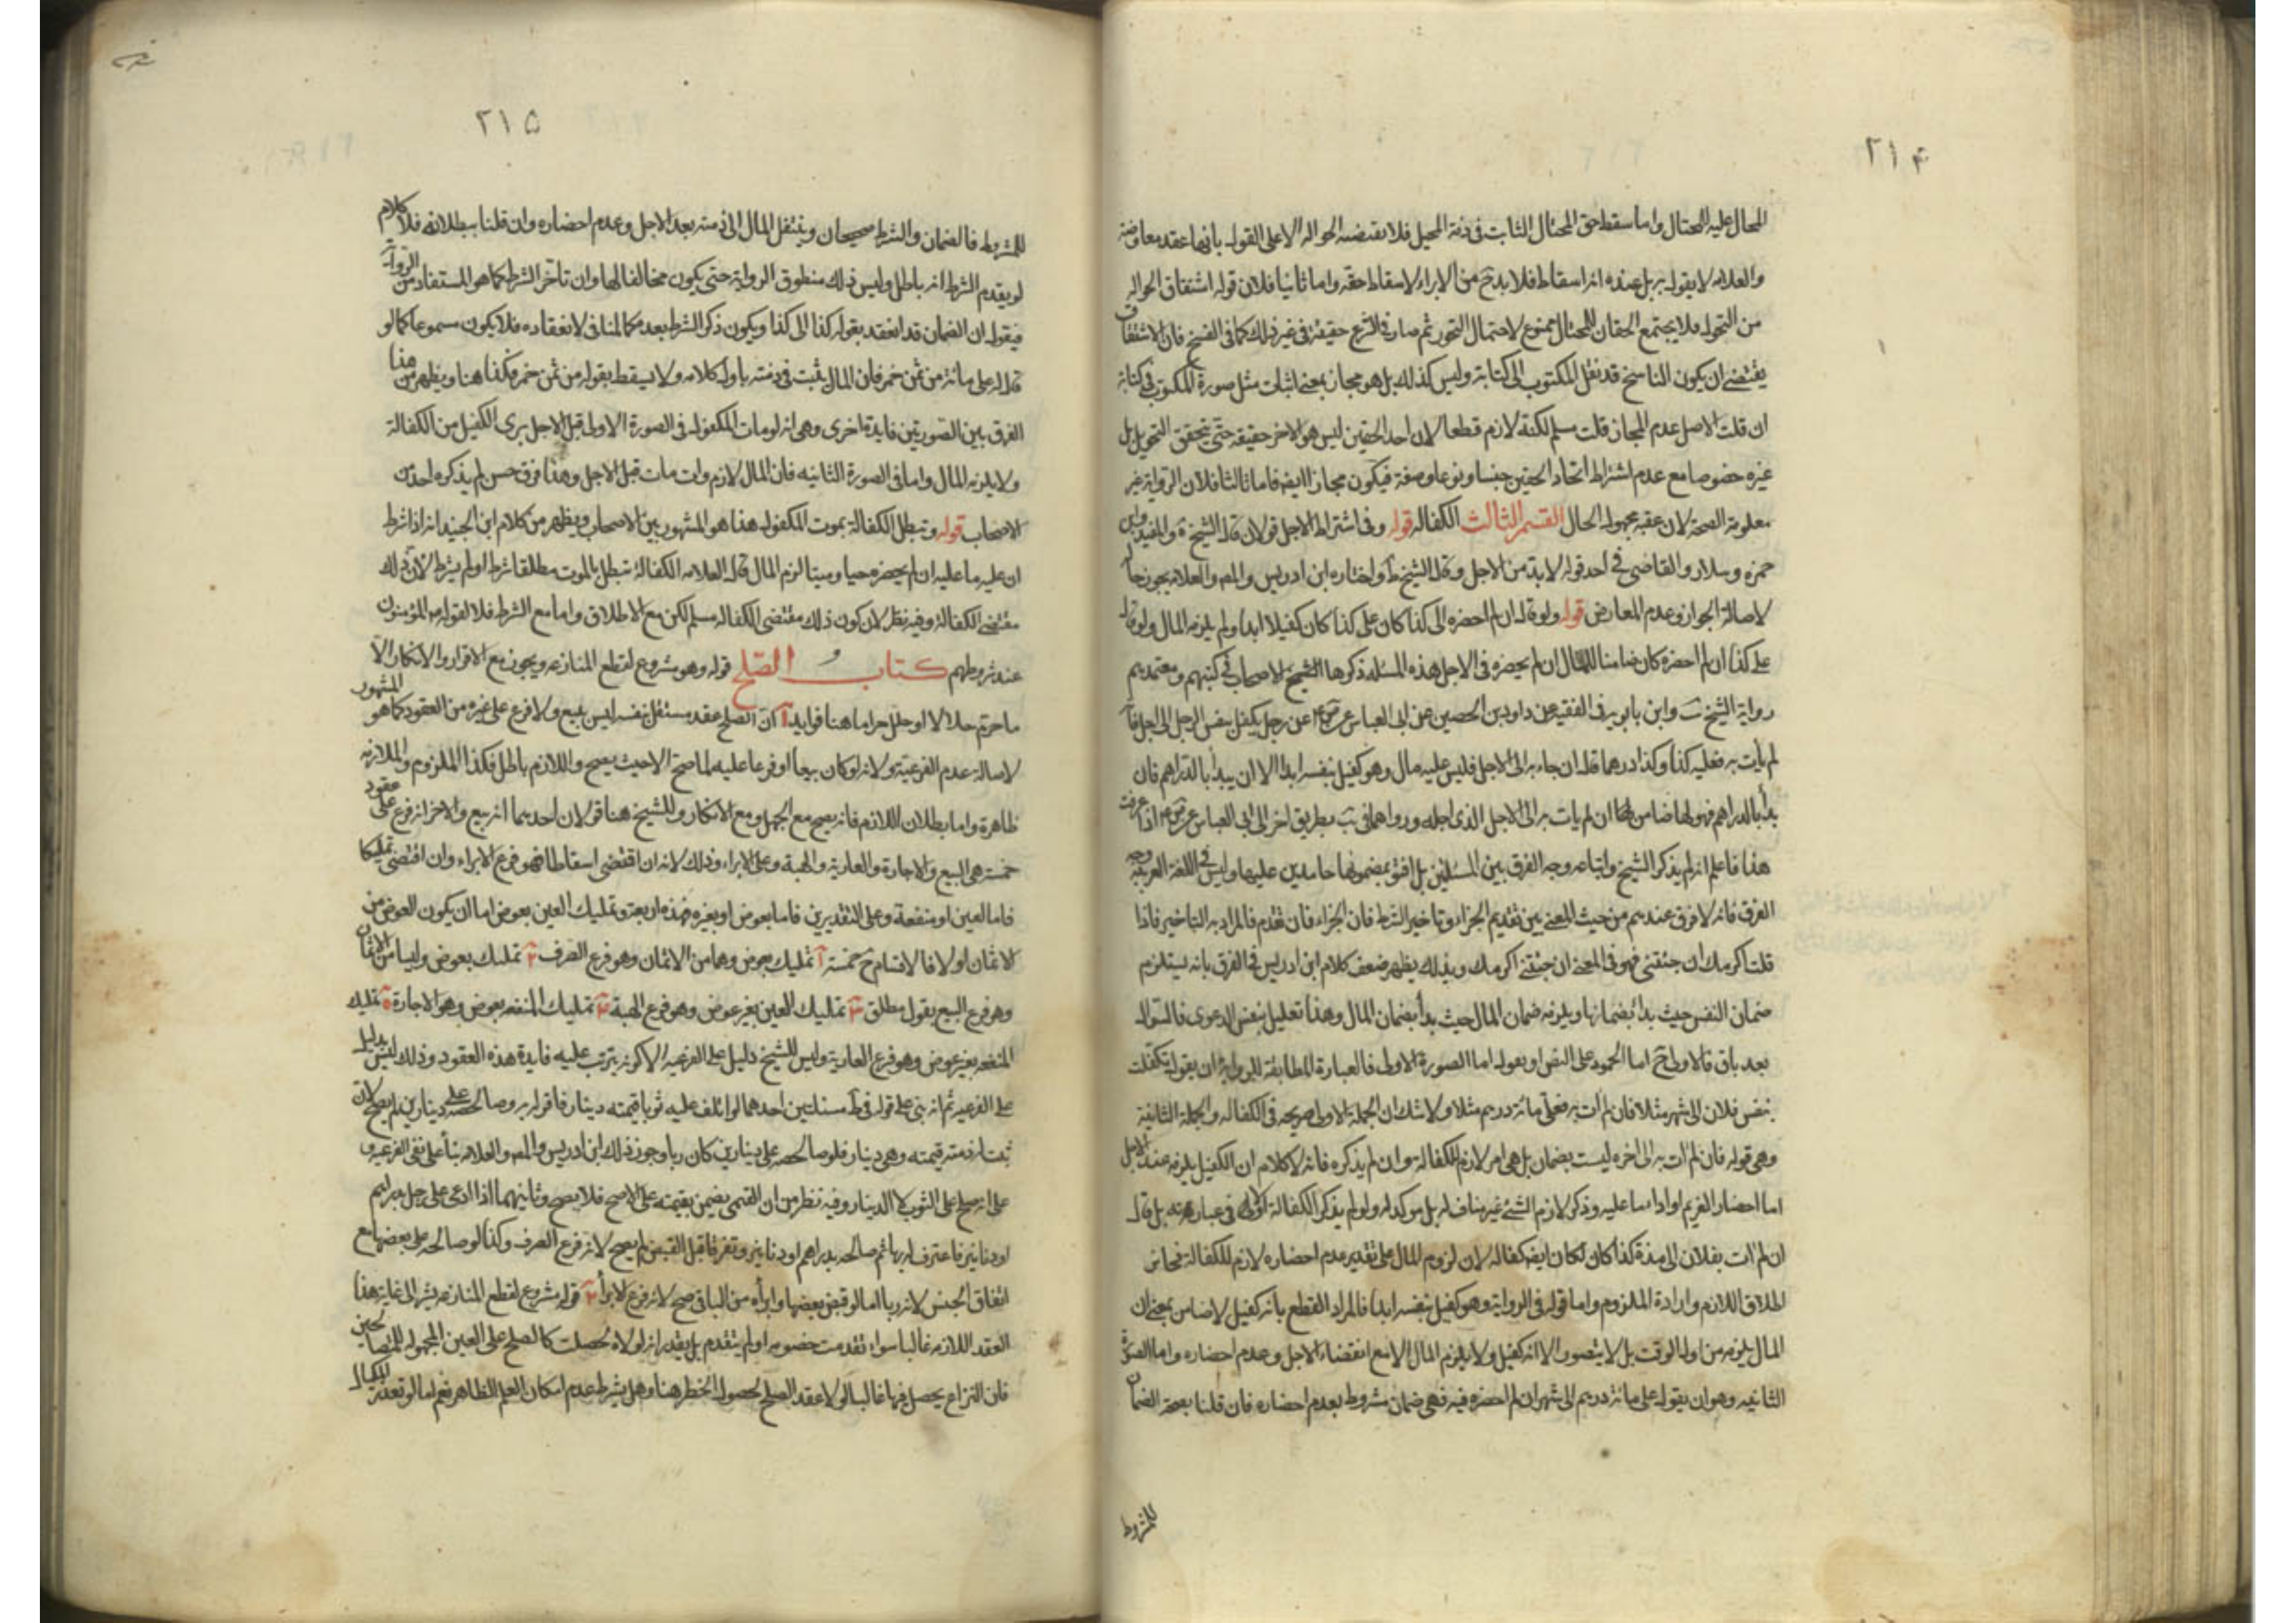 ٢١۴
المحال عليه المحتال واما سقط حق المحتال الثابت فى ذمة المحيل فلا يقتضيه الحواله الا على القول بانها عقد معاوضة
والعلامه لا يقول به بل عنده انه اسقاط فلا بد ح من الابراء لاسقاط حقه واما ثانيا فلان قوله اشتقاق الحواله
من التحول فلا يجتمع الحقان للمحتال ممنوع لاحتمال التجوز ثم صار فى الشرع حقيقة فى غير ذلك كما فى النسخ فان الاشتقاق
يقتضى ان يكون الناسخ قد نقل المكتوب الى كتابة وليس كذلك بل هو مجاز بمعنى اثبات مثل صورة المكتوب فى كتابة
ان قلت الاصل عدم المجاز قلت مسلم لكنه لازم قطعا لان احد الحقين ليس هو الاخر حقيقة حتى يتحقق التحويل بل
غيره خصوصا مع عدم اشتراط اتحاد الحقين جنسا ونوعا وصفة فيكون مجازا ايضا فاما ثالثا فلان الرواية غير
معلومة الصحة لان عقبه مجهول الحال القسم الثالث الكفاله قوله وفى اشتراط الاجل قولان قال الشيخ والمفيد وابن
حمزه وسلار والقاضى فى احد قوليه لا بد من الاجل وقال الشيخ ط واختاره ابن ادريس والمص والعلامه يجوز حالا
لاصالة الجواز وعدم المعارض قوله ولو قال ان لم احضره الى كذا كان على كذا كان كفيلا ابدا ولم يلزمه المال ولو قال
على كذا ان لم احضره كان ضامنا للمال ان لم يحضره فى الاجل هذه المسئله ذكرها الشيخ والاصحاب فى كتبهم ومعتمدهم
رواية الشيخ وابن بابويه فى الفقيه عن داود بن الحصين عن ابى العباس عن عن رجل يكفل بنفس الرجل الى اجل فان
لم يأت به فعليه كذا وكذا درهما قال ان جاء به الى الاجل فليس عليه مال وهو كفيل بنفسه ابدا الا ان يبدأ بالدراهم فان
بدأ بالدراهم فهو لها ضامن ان لم يات به الى الاجل الذى اجله ورواها فى يب بطريق اخر الى ابى العباس عن اذا عرفت
هذا فاعلم انه لم يذكر الشيخ واتباعه وجه الفرق بين المسئلتين بل افتوا بمضمونها حامدين عليها وليس فى اللغة العربية وجه
الفرق فانه لا فرق عندهم من حيث المعنى بين تقديم الجزاء وتاخير الشرط فان الجزاء فان تقدم فالمراد به التاخير فاذا
قلت اكرمك ان جئتنى فهو فى المعنى ان جئتنى اكرمك وبذلك يظهر ضعف كلام ابن ادريس فى الفرق بانه يستلزم
ضمان النفس حيث بدأ بضمانها ويلزمه ضمان المال حيث بدأ بضمان المال وهذا تعليل بنفس الدعوى فالسوال
بعد باق فالاولى ح اما الجمود على النص او بقول اما الصورة الاولى فالعبارة المطابقة للرواية ان يقول تكفلت
بنفس فلان الى شهر مثلا فان لم ات به فعلى مائة درهم مثلا ولا شك ان الجملة الاولى صريحه فى الكفاله والجملة الثانية
وهى قوله فان لم ات به الى اخره ليست بضمان بل هى امر لازم للكفالة وان لم يذكره فانه لا كلام ان الكفيل يلزمه عند الاجل
اما احضار الغريم او اداء ما عليه وذكر لازم الشئ غير مناف له بل مؤكد له ولو لم يذكر الكفالة اولا فى عبارته بل قال
ان لم ات بفلان الى مدة كذا كان لكان ايضا كفاله لان لزوم المال على تقدير عدم احضاره لازم للكفالة فجاز
اطلاق اللازم وارادة الملزوم واما قوله فى الرواية وهو كفيل بنفسه ابدا فالمراد القطع بانه كفيل لا ضامن بمعنى ان
المال يلزمه من اول الوقت بل لا يتصور الا انه كفيل ولا يلزم المال الا مع انقضاء الاجل وعدم احضاره واما الصورة
الثانيه وهو ان يقول على مائة درهم الى شهر ان لم احضره فيه فهى ضمان مشروط بعدم احضاره فان قلنا بصحة الضمان
للمشروط
٢١۵
للمشروط فالضمان والشرط صحيحان وينتقل المال الى ذمته بعد الاجل وعدم احضاره وان قلنا ببطلانه فلا كلام
لو يقدم الشرط انه باطل وليس ذلك منطوق الرواية حتى يكون مخالفا لها وان تأخر الشرط كما هو المستفاد من الرواية
فيقول ان الضمان قد انعقد بقوله كذا الى كذا ويكون ذكر الشرط بعده كالمنافى لانعقاده فلا يكون مسموعا كما لو
قال له على مائة من ثمن خمر فان المال يثبت فى ذمته باول كلامه ولا يسقط بقوله من ثمن خمر فكذا هنا ويظهر من هذا
الفرق بين الصورتين فايدة اخرى وهى انه لو مات المكفول فى الصورة الاولى قبل الاجل برى الكفيل من الكفالة
ولا يلزمه المال واما فى الصورة الثانيه فان المال لازم وان مات قبل الاجل وهذا فرق حسن لم يذكره احد من
الاصحاب قوله وتبطل الكفالة بموت المكفول هذا هو المشهور بين الاصحاب ويظهر من كلام ابن الجنيد انه اذا شرط
ان عليه ما عليه ان لم يحضره حيا وميتا لزم المال قال العلامه الكفالة تبطل بالموت مطلقا شرط او لم يشرط لان ذلك
مقتضى الكفالة وفيه نظر لان كون ذلك مقتضى الكفاله مسلم لكن مع الاطلاق واما مع الشرط فلا لقوله المؤمنون
عند شروطهم كتاب الصلح قوله وهو مشروع لقطع المنازعه ويجوز مع الاقرار والانكار الا
ما حرم حلالا او حلل حراما هنا فوايد آ ان الصلح عقد مستقل بنفسه ليس ببيع ولا فرع على غيره من العقود كما هو المشهور
لاصالة عدم الفرعية ولانه لو كان بيعا او فرعا عليه لما صح الا حيث يصح واللازم باطل فكذا الملزوم والملازمه
ظاهرة واما بطلان اللازم فانه يصح مع الجهل ومع الانكار وللشيخ هنا قولان احدهما انه بيع والاخر انه فرع على عقود
خمسة هى البيع والاجارة والعارية والهبة وعلى الابراء وذلك لانه ان اقتضى اسقاطا فهو فرع الابراء وان اقتضى تمليكا
فاما لعين او منفعة وعلى التقديرين فاما بعوض او بغيره فهذه اربعة وتمليك العين بعوض اما ان يكون العوض من
الاثمان او لا فالاقسام ح خمسة آ تمليك بعوض وهما من الاثمان وهو فرع الصرف ٢ تمليك بعوض وليسا من الاثمان
وهو فرع البيع بقول مطلق ٣ تمليك العين بغير عوض وهو فرع الهبة ۴ تمليك المنفعه بعوض وهو الاجارة ۵ تمليك
المنفعه بغير عوض وهو فرع العارية وليس للشيخ دليل على الفرعيه الا كونه يترتب عليه فايدة هذه العقود وذلك ليس بدليل
على الفرعيه ثم انه بنى على قوله فى ط مسئلتين احدهما لو اتلف عليه ثوبا قيمته دينار فاقر له به وصالحه على دينارين لم يصح لانه
ثبت له ذمته قيمته وهى دينار فلو صالحه على دينارين كان ربا وجوز ذلك ابن ادريس والمص والعلامه بناء على نفى الفرعيه و
على انه صلح على الثوب لا الدينار وفيه نظر من ان القيمى يضمن بقيمته على الاصح فلا يصح وثانيهما اذا ادعى على رجل بدراهم
او دنانير فاعترف له بها ثم صالحه بدراهم او دنانير وتفرقا قبل القبض لم يصح لانه فرع الصرف وكذا لو صالحه على بعضها مع
اتفاق الجنس لانه ربا اما لو قبض بعضها وابرأه من الباقى صح لانه فرع الابرأ ٢ قوله مشروع لقطع المنازعه يشير الى غاية هذا
العقد اللازمه غالبا سواء تقدمت خصومه او لم يتقدم بل يقدر انه لولاه لحصلت كالصلح على العين المجهوله للمتصالحين
فان النزاع يحصل فيها غالبا لولا عقد الصلح لحصول الخطر هنا وهل يشرط عدم امكان العلم الظاهر نعم اما لو تعذر المكيال